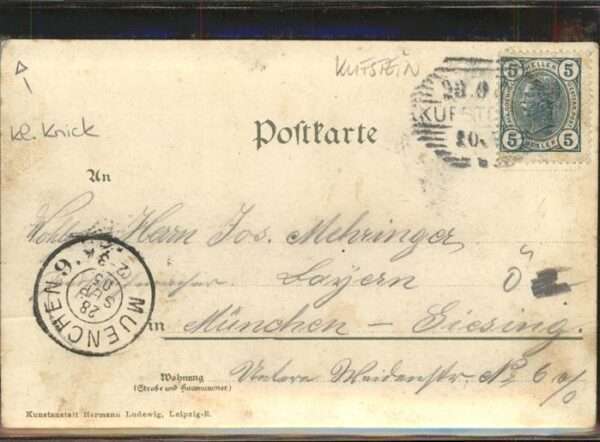 KUFSTEIN
5 HELLER 5
5 HELLER 5
KUFSTEIN
kl. Knick
Postkarte
An
Wohlg. Herrn Jos. Mehringer
Bayern
MUENCHEN
28
SEP
03
in München – Giesing.
Wohnung
(Straße und Hausnummer)
Untere Weidenstr. No 6 0/0
Kunstanstalt Hermann Ludewig, Leipzig-R.